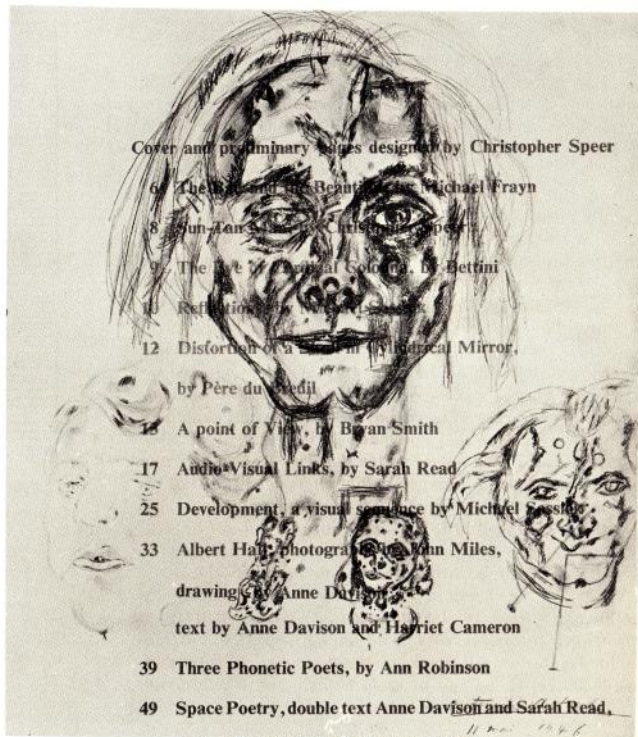 Cover and preliminary pages designed by Christopher Speer
6 The and the Beautiful, by Michael Frayn
8 Sun-Tan Christopher Speer
9 The of Cardinal Colonna, by Bettini
10 Reflections, by
12 Distortion of a in Cylindrical Mirror,
by Père du Breuil
15 A point of View, by Bryan Smith
17 Audio-Visual Links, by Sarah Read
25 Development, a visual sequence by Michael
33 Albert Hall, photographs by John Miles,
drawings by Anne Davison,
text by Anne Davison and Harriet Cameron
39 Three Phonetic Poets, by Ann Robinson
49 Space Poetry, double text Anne Davison and Sarah Read,
11 mai 1946